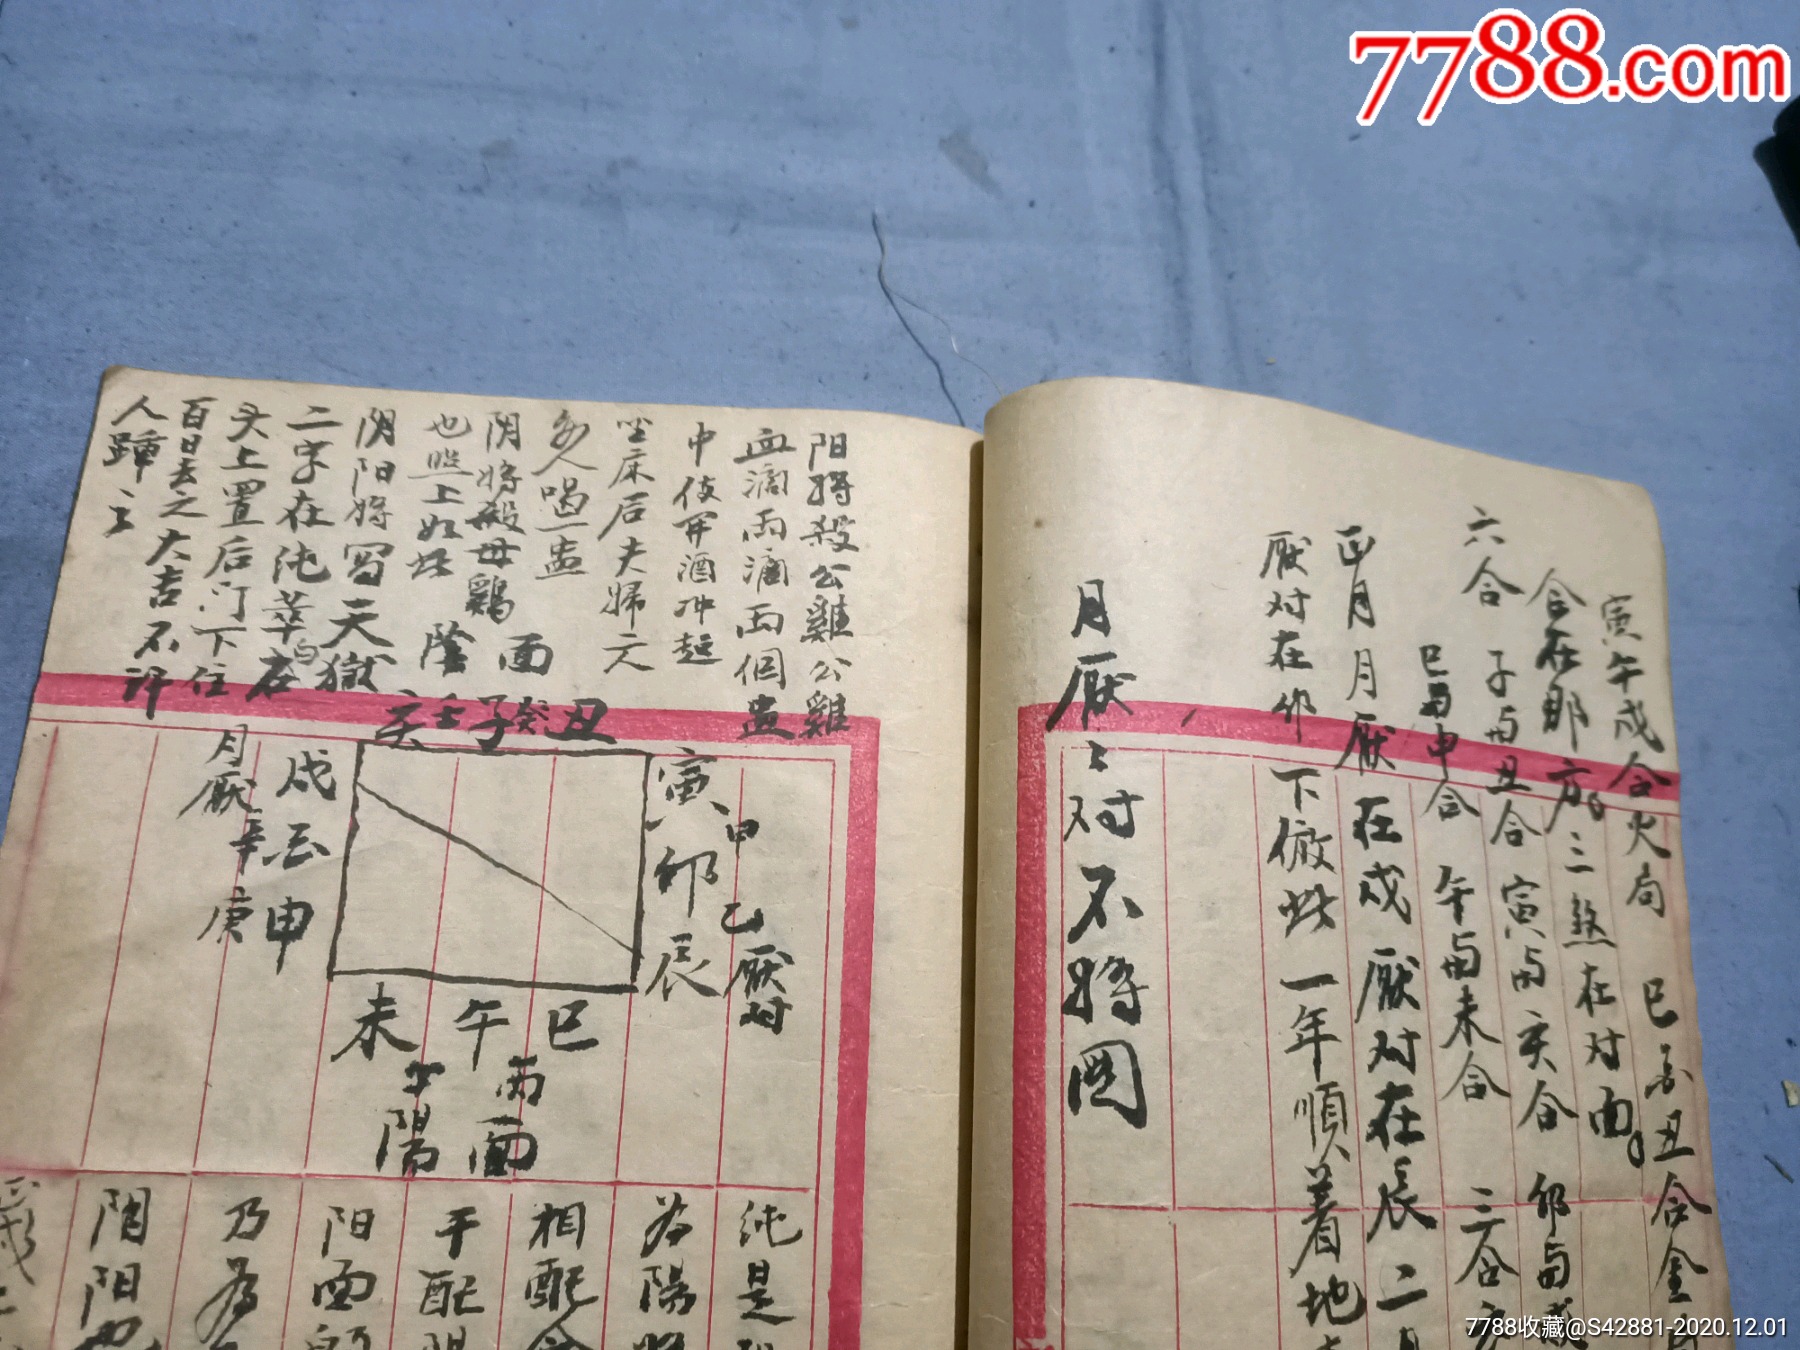 7788.com
寅午戌合火局 巳酉丑合金局
合在那方。三煞在对面。
六合 子与丑合 寅与亥合 卯与戌
巳与申合 午与未合 三合
正月月厭在戌 厭对在辰 二月
厭对在卯 下倣此 一年順着地
月厭之对不将图
阳将殺公雞公雞
血滴两滴两個盅
中伎开酒冲起
坐床后夫婦元
女人喝一盅
阴将殺母鷄
也照上如此
阴阳将写天獄
二字在纯草的在
头上置后门下住
百日去之大吉不許
人踵之
陰 面
亥壬子癸丑
寅甲卯乙辰
厭对
戌辛酉庚申
月厭
未 午 巳
丙
陽 面
纯是
为陽将
相配合
干配陽
阳面的
乃为
阴阳也
7788收藏@S42881-2020.12.01